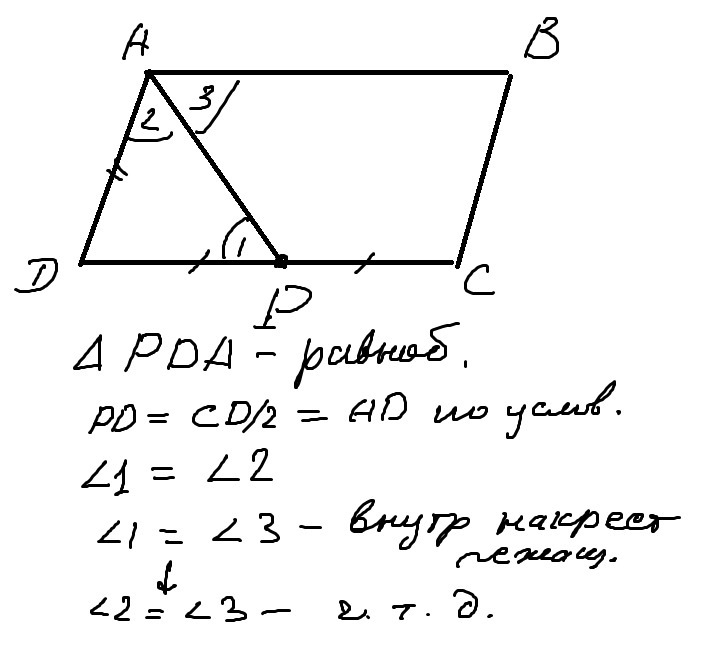 A B
3
2
1
D P C
Δ PDA - равноб.
PD = CD/2 = AD по услов.
∠1 = ∠2
∠1 = ∠3 - внутр накрест
лежащ.
↓
∠2 = ∠3 - ч. т. д.